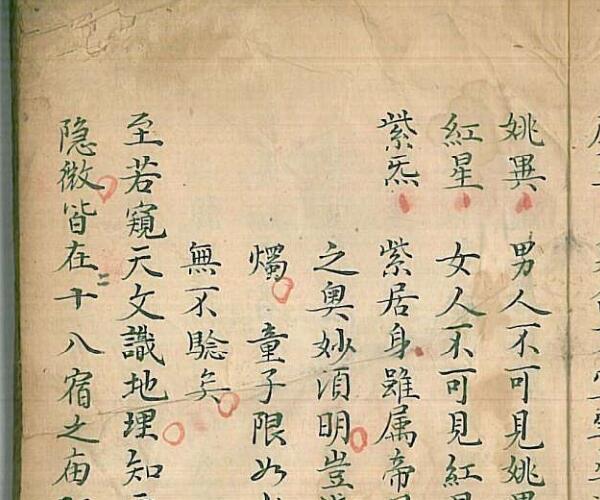 姚異 男人不可見姚
紅星 女人不可見紅
紫炁 紫居身雖属帝
之奥妙湏明豈
燭童子限如
無不驗矣
至若窺天文識地理知
隐微皆在十二八宿之庙